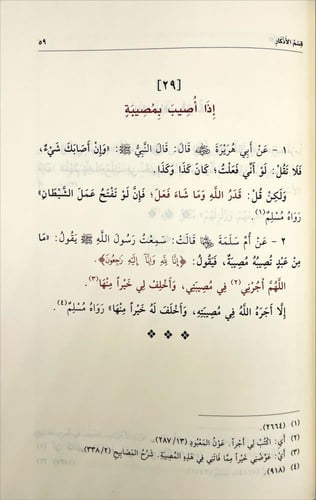 قِسْمُ الأَذْكَارِ ٥٩
[٢٩]
إِذَا أُصِيبَ بِمُصِيبَةٍ
١ - عَنْ أَبِي هُرَيْرَةَ رضي الله عنه قَالَ: قَالَ النَّبِيُّ ﷺ: «وَإِنْ أَصَابَكَ شَيْءٌ،
فَلَا تَقُلْ: لَوْ أَنِّي فَعَلْتُ؛ كَانَ كَذَا وَكَذَا.
وَلَكِنْ قُلْ: قَدَرُ اللَّهِ وَمَا شَاءَ فَعَلَ؛ فَإِنَّ لَوْ تَفْتَحُ عَمَلَ الشَّيْطَانِ»
رَوَاهُ مُسْلِمٌ(١).
٢ - عَنْ أُمِّ سَلَمَةَ رضي الله عنها قَالَتْ: سَمِعْتُ رَسُولَ اللَّهِ ﷺ يَقُولُ: «مَا
مِنْ عَبْدٍ تُصِيبُهُ مُصِيبَةٌ، فَيَقُولُ: ﴿إِنَّا لِلَّهِ وَإِنَّا إِلَيْهِ رَاجِعُونَ﴾.
اللَّهُمَّ أْجُرْنِي(٢) فِي مُصِيبَتِي، وَأَخْلِفْ لِي خَيْراً مِنْهَا(٣).
إِلَّا أَجَرَهُ اللَّهُ فِي مُصِيبَتِهِ، وَأَخْلَفَ لَهُ خَيْراً مِنْهَا» رَوَاهُ مُسْلِمٌ(٤).
(١) (٢٦٦٤).
(٢) أَيْ: اكْتُبْ لِي أَجْراً. عَوْنُ المَعْبُودِ (٢٨٧/١٣).
(٣) أَيْ: عَوِّضْنِي خَيْراً مِمَّا فَاتَنِي فِي هَذِهِ المُصِيبَةِ. شَرْحُ المَصَابِيحِ (٣٣٨/٢).
(٤) (٩١٨).